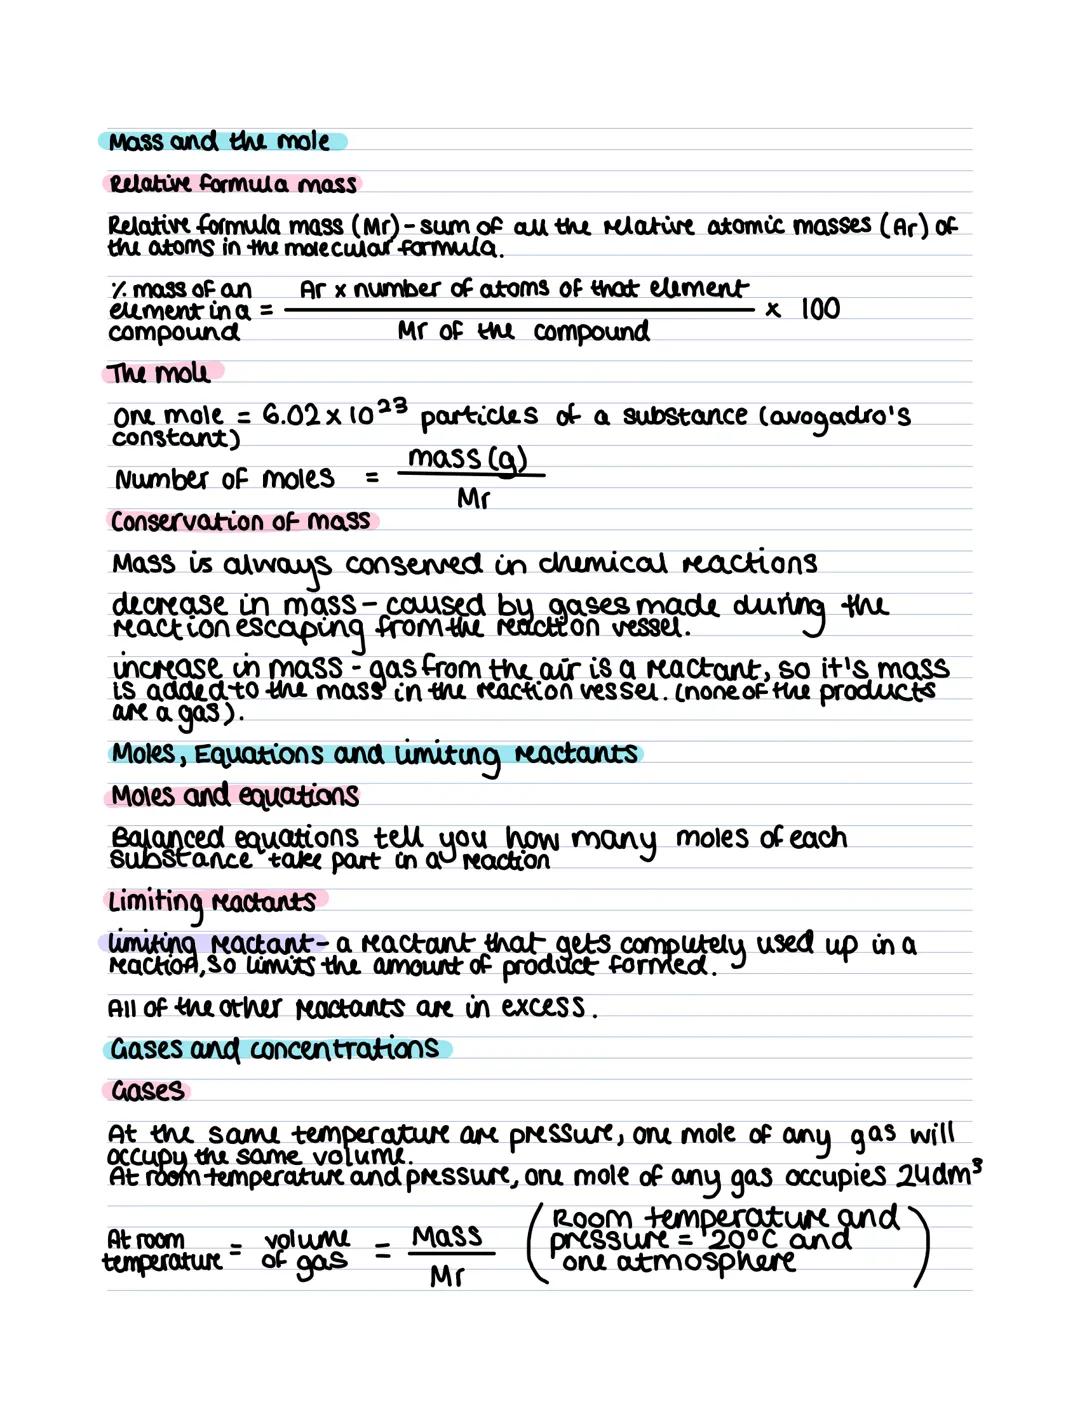 Mass and the mole
Relative formula mass
Relative formula mass (Mr) - sum of all the relative atomic masses (Ar) of
the atoms in the molecular formula.
% mass of an
element in a =
compound
Ar x number of atoms of that element
Mr of the compound
x 100
The mole
One mole = 6.02 x 10²³ particles of a substance (avogadro's
constant)
Number of moles = mass (g)
Mr
Conservation of mass
Mass is always conserved in chemical reactions
decrease in mass - caused by gases made during the
reaction escaping from the reaction vessel.
increase in mass - gas from the air is a reactant, so it's mass
is added to the mass in the reaction vessel. (none of the products
are a gas).
Moles, Equations and limiting reactants
Moles and equations
Balanced equations tell you how many moles of each
substance take part in a reaction
Limiting reactants
limiting reactant - a reactant that gets completely used up in a
reaction, so limits the amount of product formed.
All of the other reactants are in excess.
Gases and concentrations
Gases
At the same temperature are pressure, one mole of any gas will
occupy the same volume.
At room temperature and pressure, one mole of any gas occupies 24dm³
At room
temperature =
volume
of gas =
Mass
Mr
(Room temperature and
pressure = 20°C and
one atmosphere)